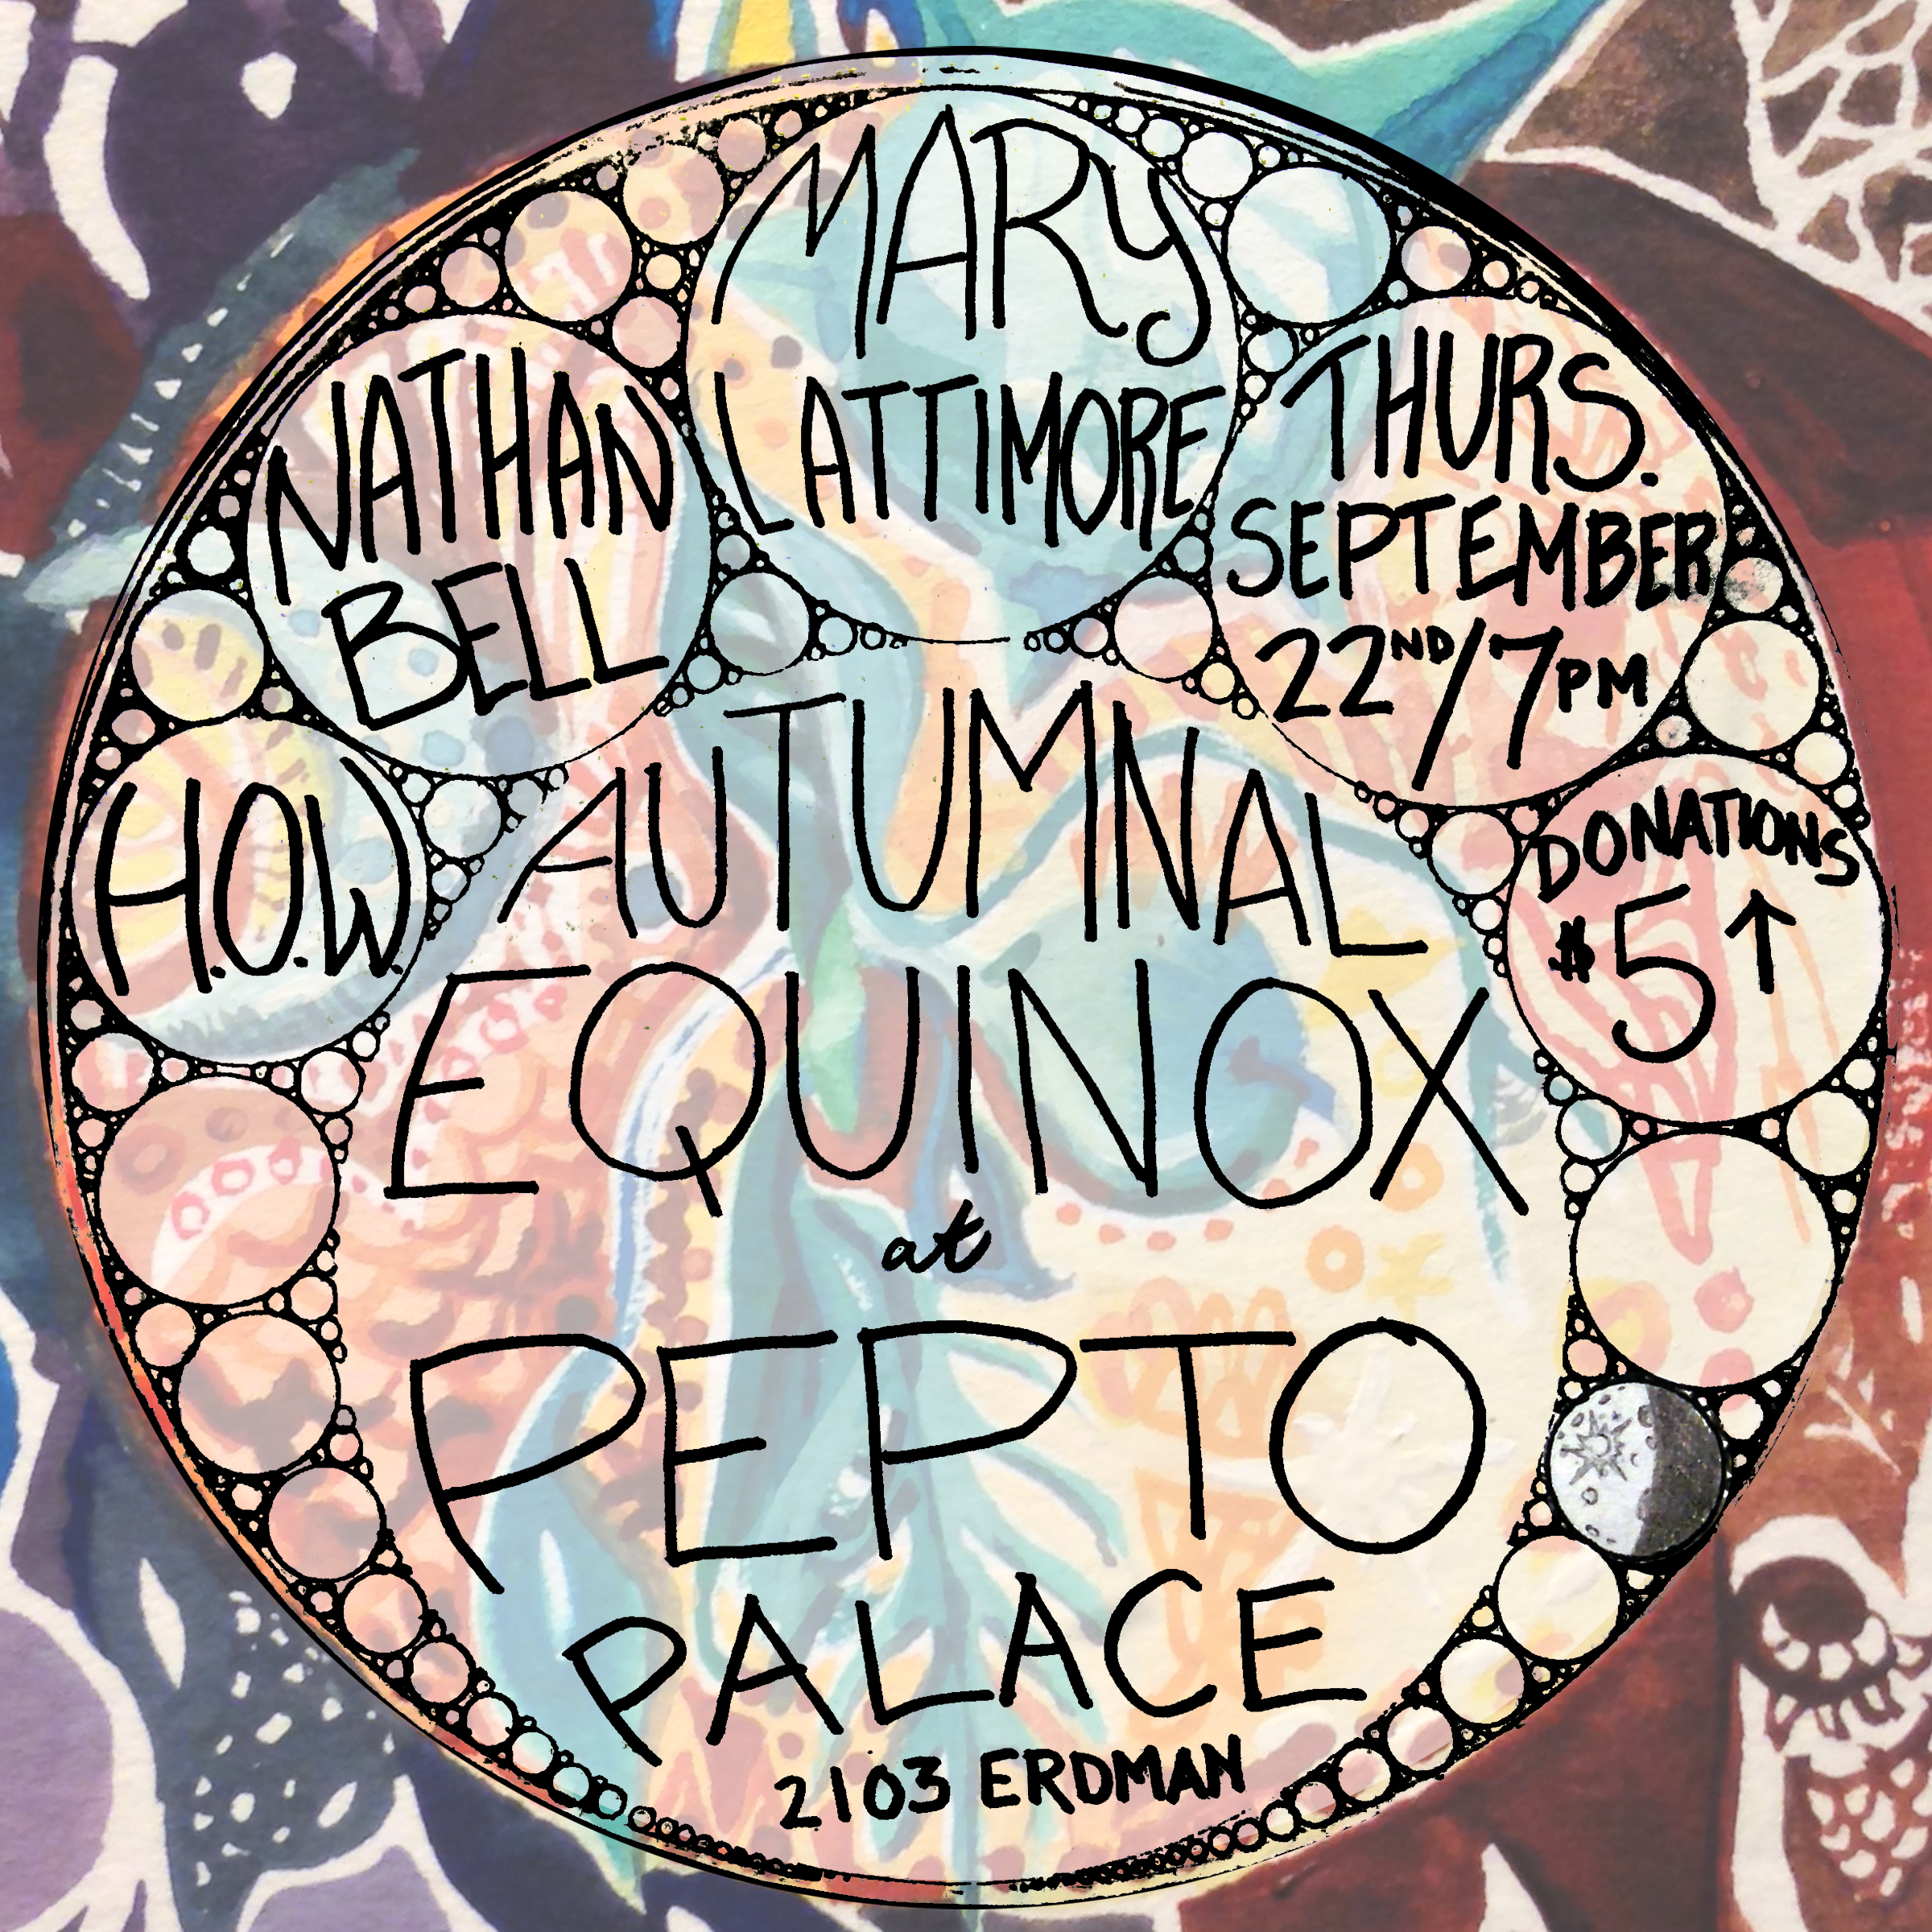 MARY
LATTIMORE
NATHAN
BELL
THURS.
SEPTEMBER
22ND/7PM
H.O.W.
DONATIONS
$5↑
AUTUMNAL
EQUINOX
at
PEPTO
PALACE
2103 ERDMAN